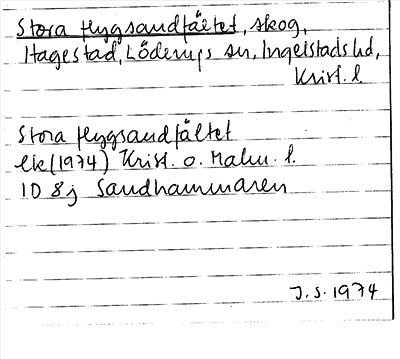 Stora flygsandfältet, skog,
Hagestad, Löderups sn, Ingelstads hd,
Krist. l
Stora flygsandfältet
ek (1974) Krist. o. Malm. l.
1D 8j Sandhammaren
J.S. 1974